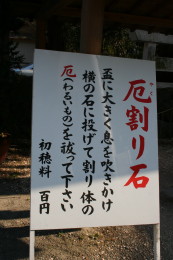 厄割り石
盃に大きく息を吹きかけ
横の石に投げて割り体の
厄(わるいもの)を祓って下さい
初穂料 百円